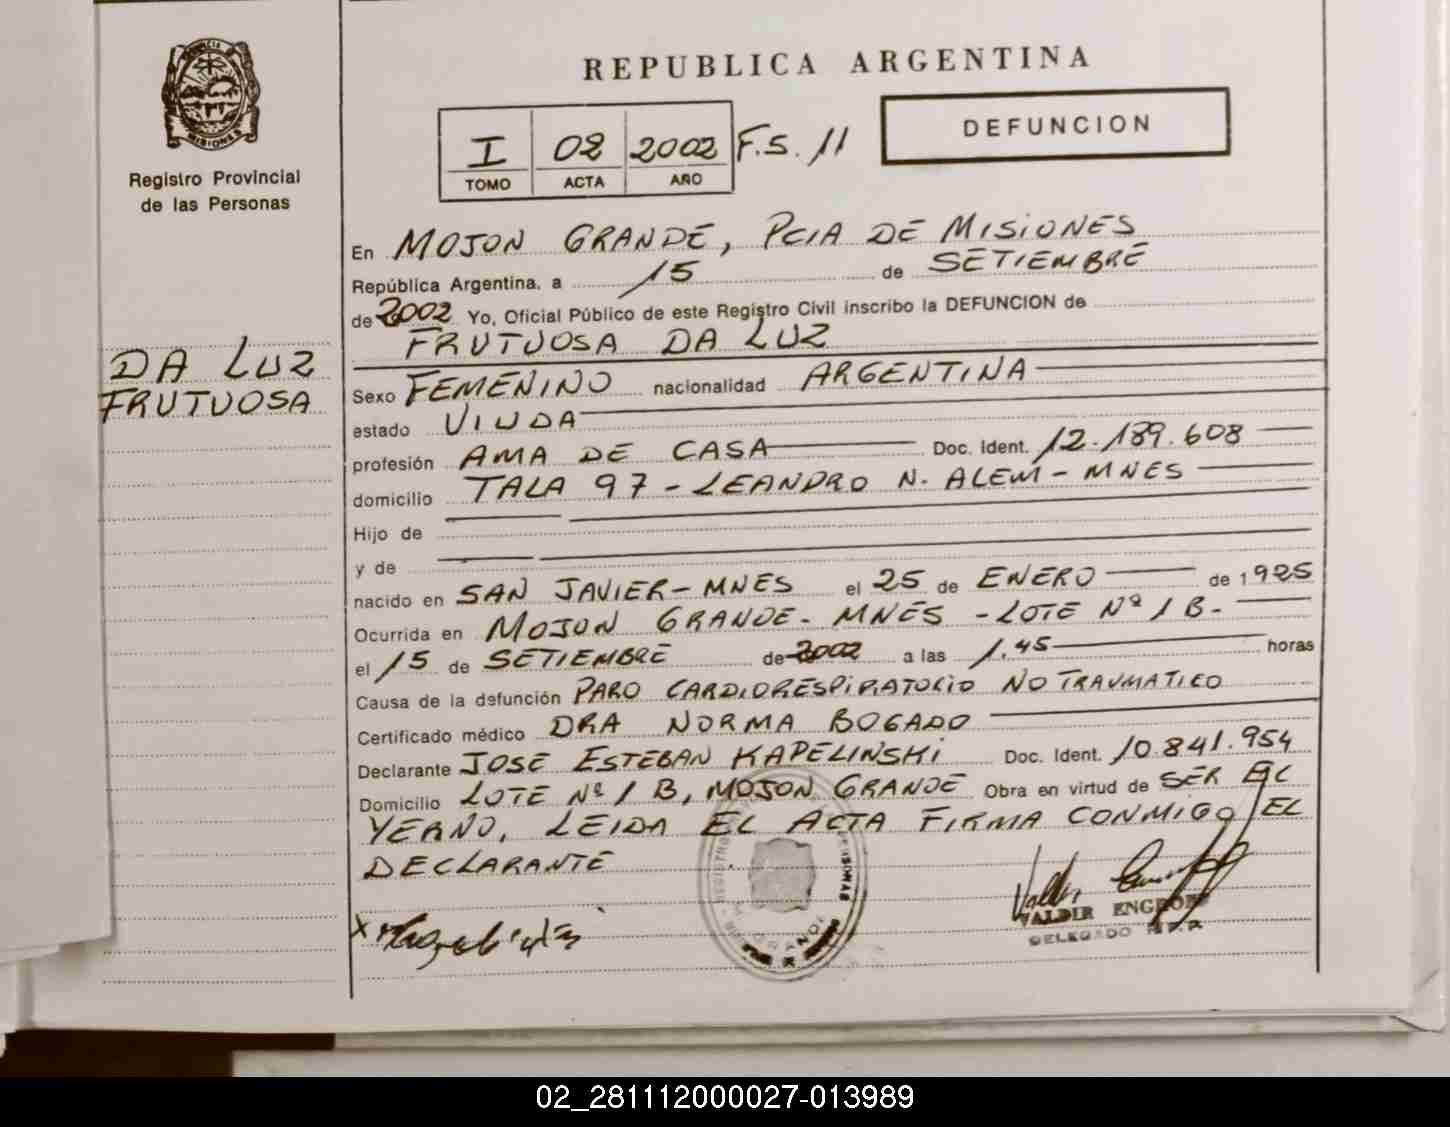 PROVINCIA DE
MISIONES
Registro Provincial
de las Personas
DA LUZ
FRUTUOSA
REPUBLICA ARGENTINA
I 02 2002 F.S. 11
TOMO ACTA AÑO
DEFUNCION
En MOJON GRANDE, PCIA DE MISIONES
República Argentina, a 15 de SETIEMBRE
de 2002 Yo, Oficial Público de este Registro Civil inscribo la DEFUNCION de
FRUTUOSA DA LUZ
Sexo FEMENINO nacionalidad ARGENTINA
estado VIUDA
profesión AMA DE CASA Doc. Ident. 12.189.608
domicilio TALA 97 - LEANDRO N. ALEM - MNES
Hijo de
y de
nacido en SAN JAVIER - MNES el 25 de ENERO de 1925
Ocurrida en MOJON GRANDE - MNES - LOTE Nº 1 B.-
el 15 de SETIEMBRE de 2002 a las 1,45 horas
Causa de la defunción PARO CARDIORESPIRATORIO NO TRAUMATICO
Certificado médico DRA NORMA BOGADO
Declarante JOSE ESTEBAN KAPELINSKI Doc. Ident. 10.841.954
Domicilio LOTE Nº 1 B, MOJON GRANDE Obra en virtud de SER EL
YERNO, LEIDA EL ACTA FIRMA CONMIGO EL
DECLARANTE
VALDIR ENGROF
DELEGADO
02_281112000027-013989